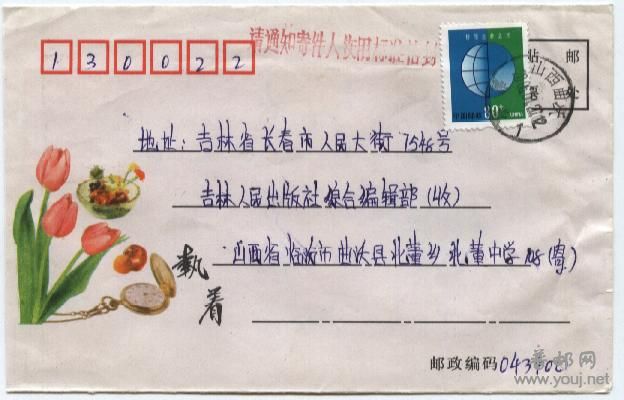 130022
请通知寄件人使用标准信封
80分
中国邮政
山西曲沃
贴 邮
处 票
地址:吉林省长春市人民大街7548号
吉林人民出版社综合编辑部(收)
山西省临汾市曲沃县北董乡北董中学 (寄)
執
着
邮政编码
普邮网
www.youj.net